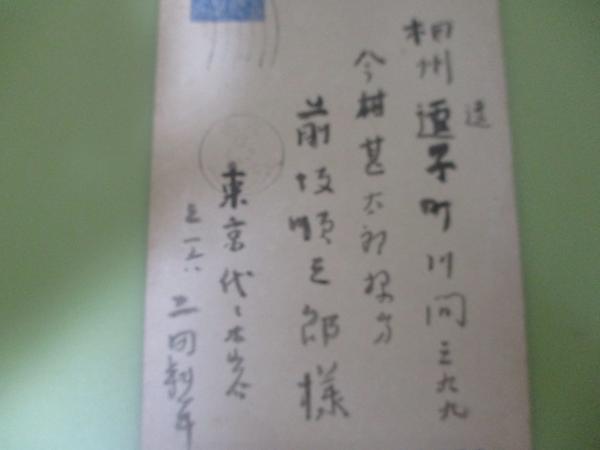 相州逗子町川間三九九
逗
今村甚太郎様方
前坂順三郎様
東京代々木山谷
三一六